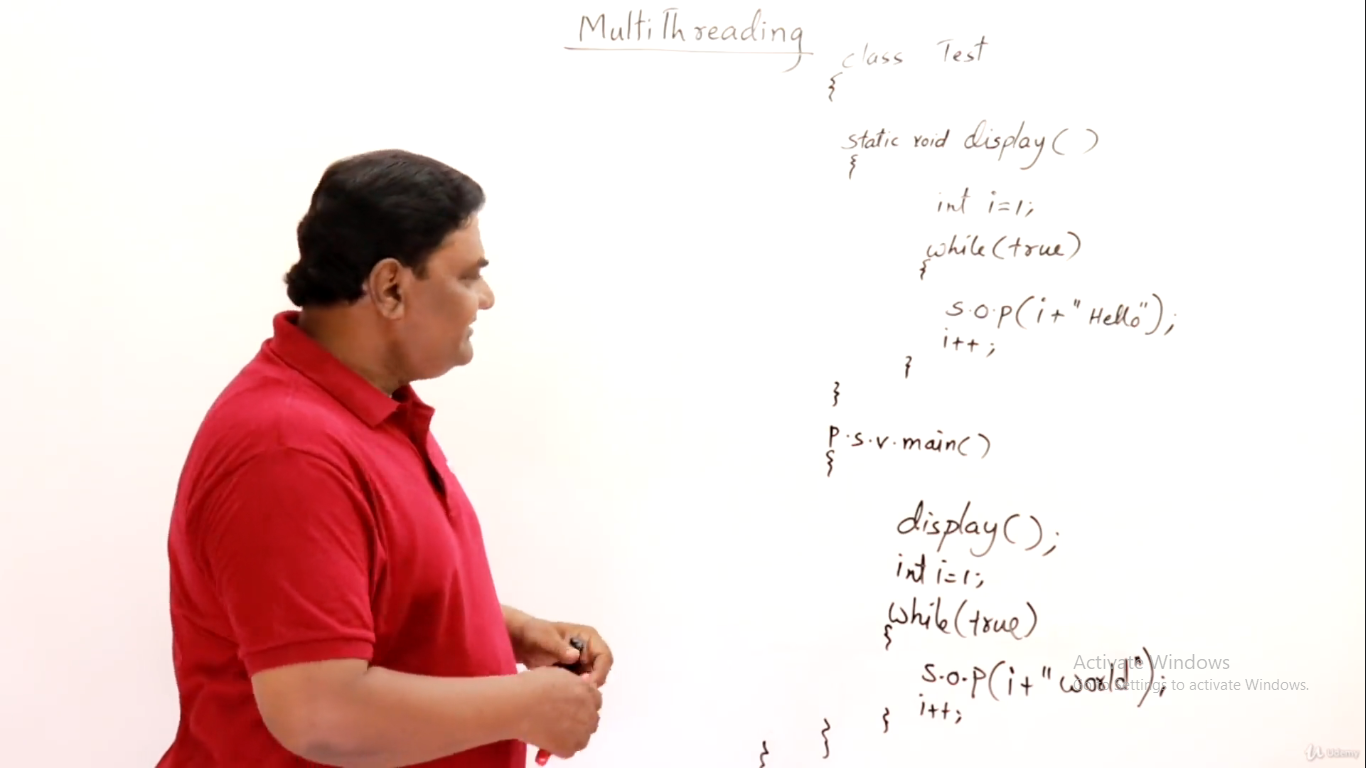 MultiThreading
class Test
{
static void display( )
{
int i=1;
while(true)
{
s.o.p(i+"Hello");
i++;
}
}
p.s.v.main()
{
display();
int i=1;
while(true)
{
s.o.p(i+"world");
i++;
}
}
}
Activate Windows
Go to Settings to activate Windows.
Udemy